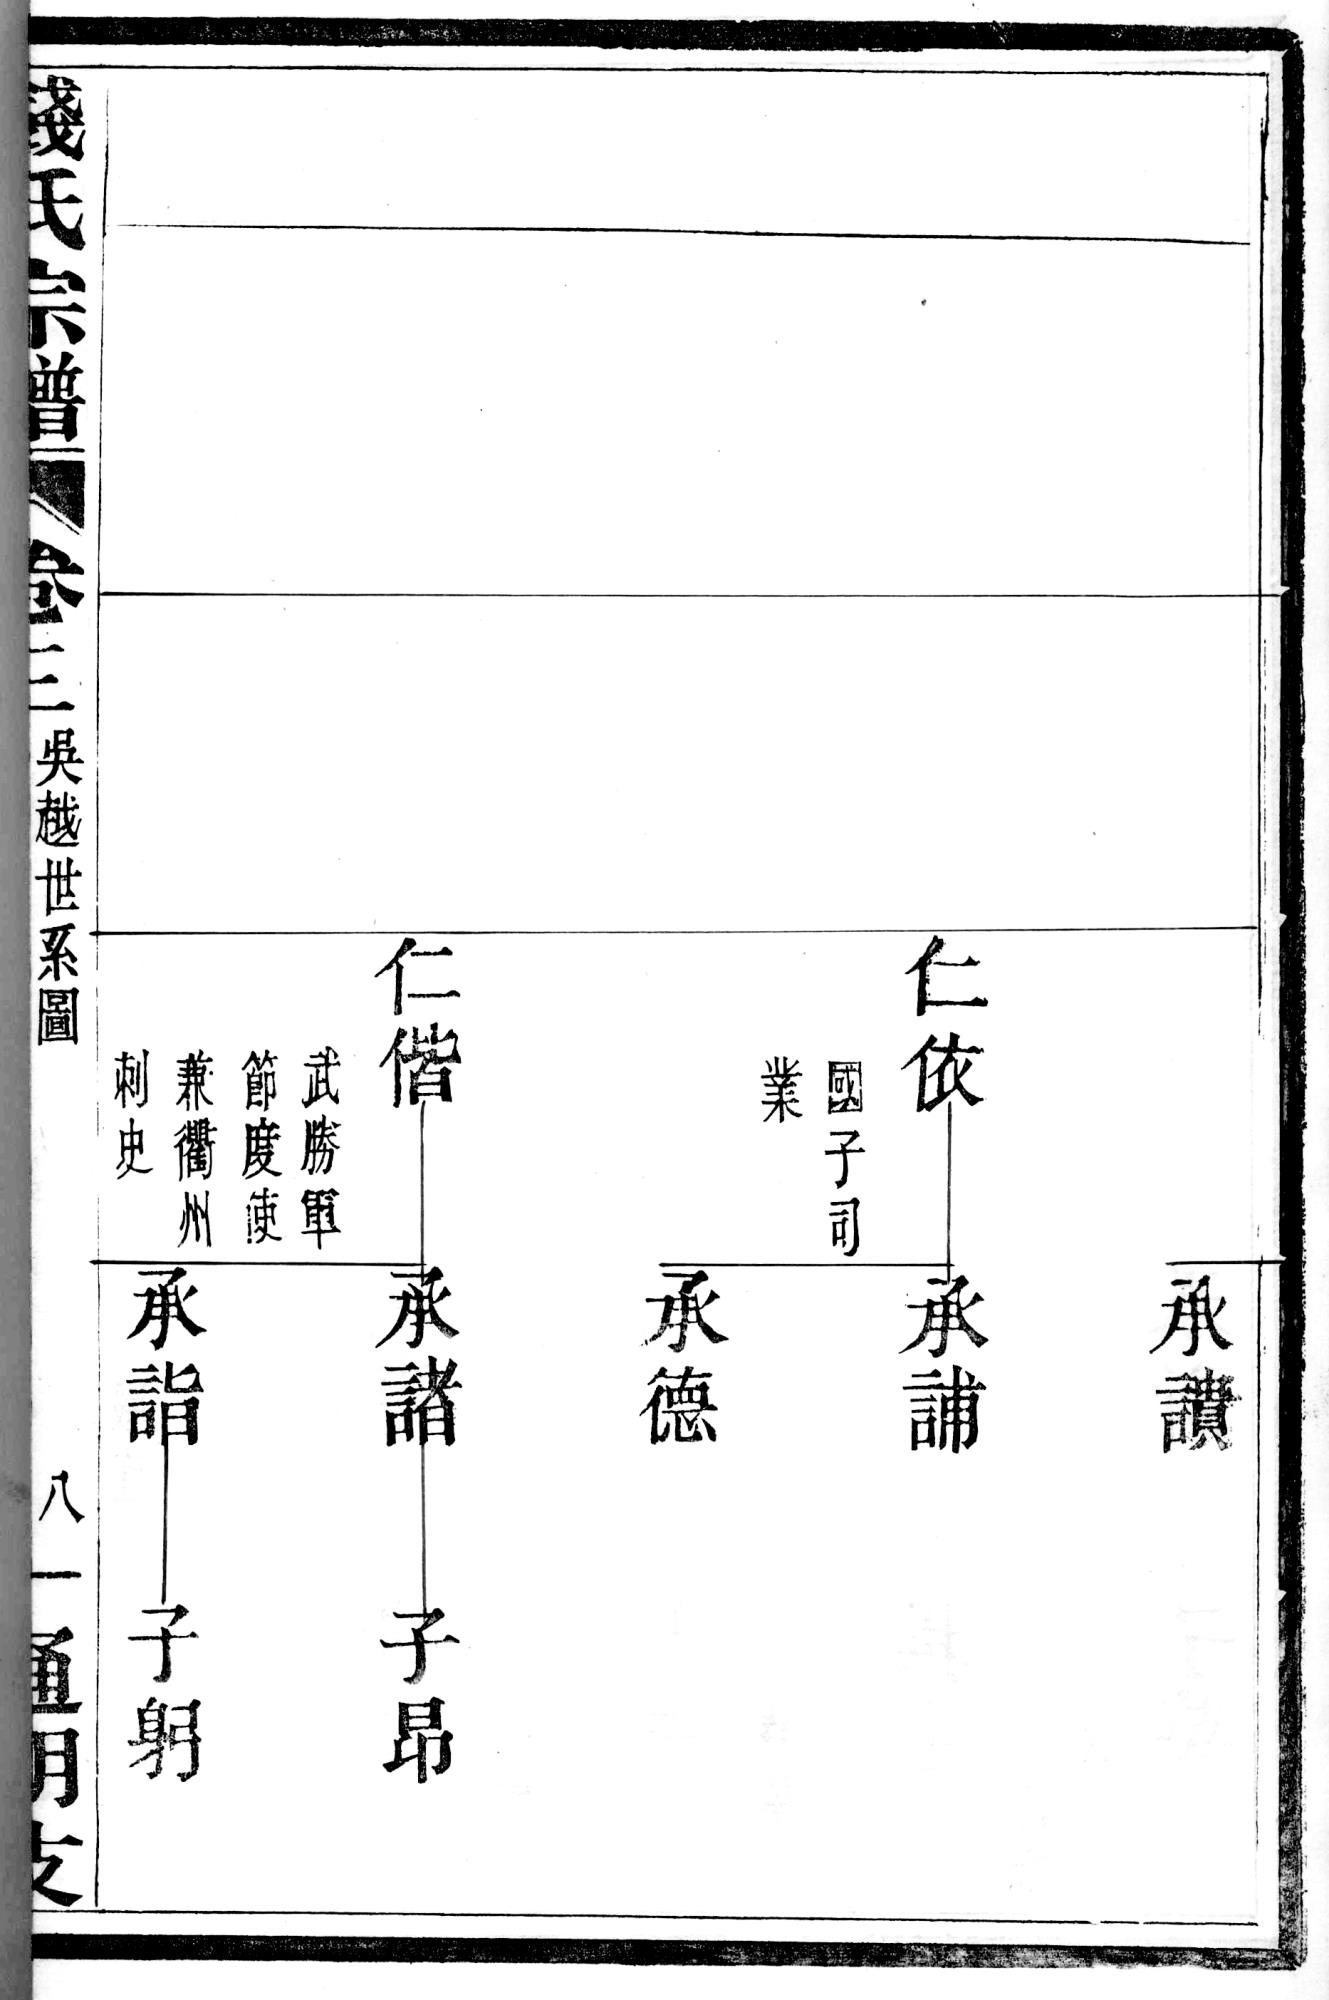 承讚
仁依
國子司
業
承誧
承德
仁偕
武勝軍
節度使
兼衢州
刺史
承諸
子昂
承詣
子躬
錢氏宗譜
卷三
吳越世系圖
八一
通明支